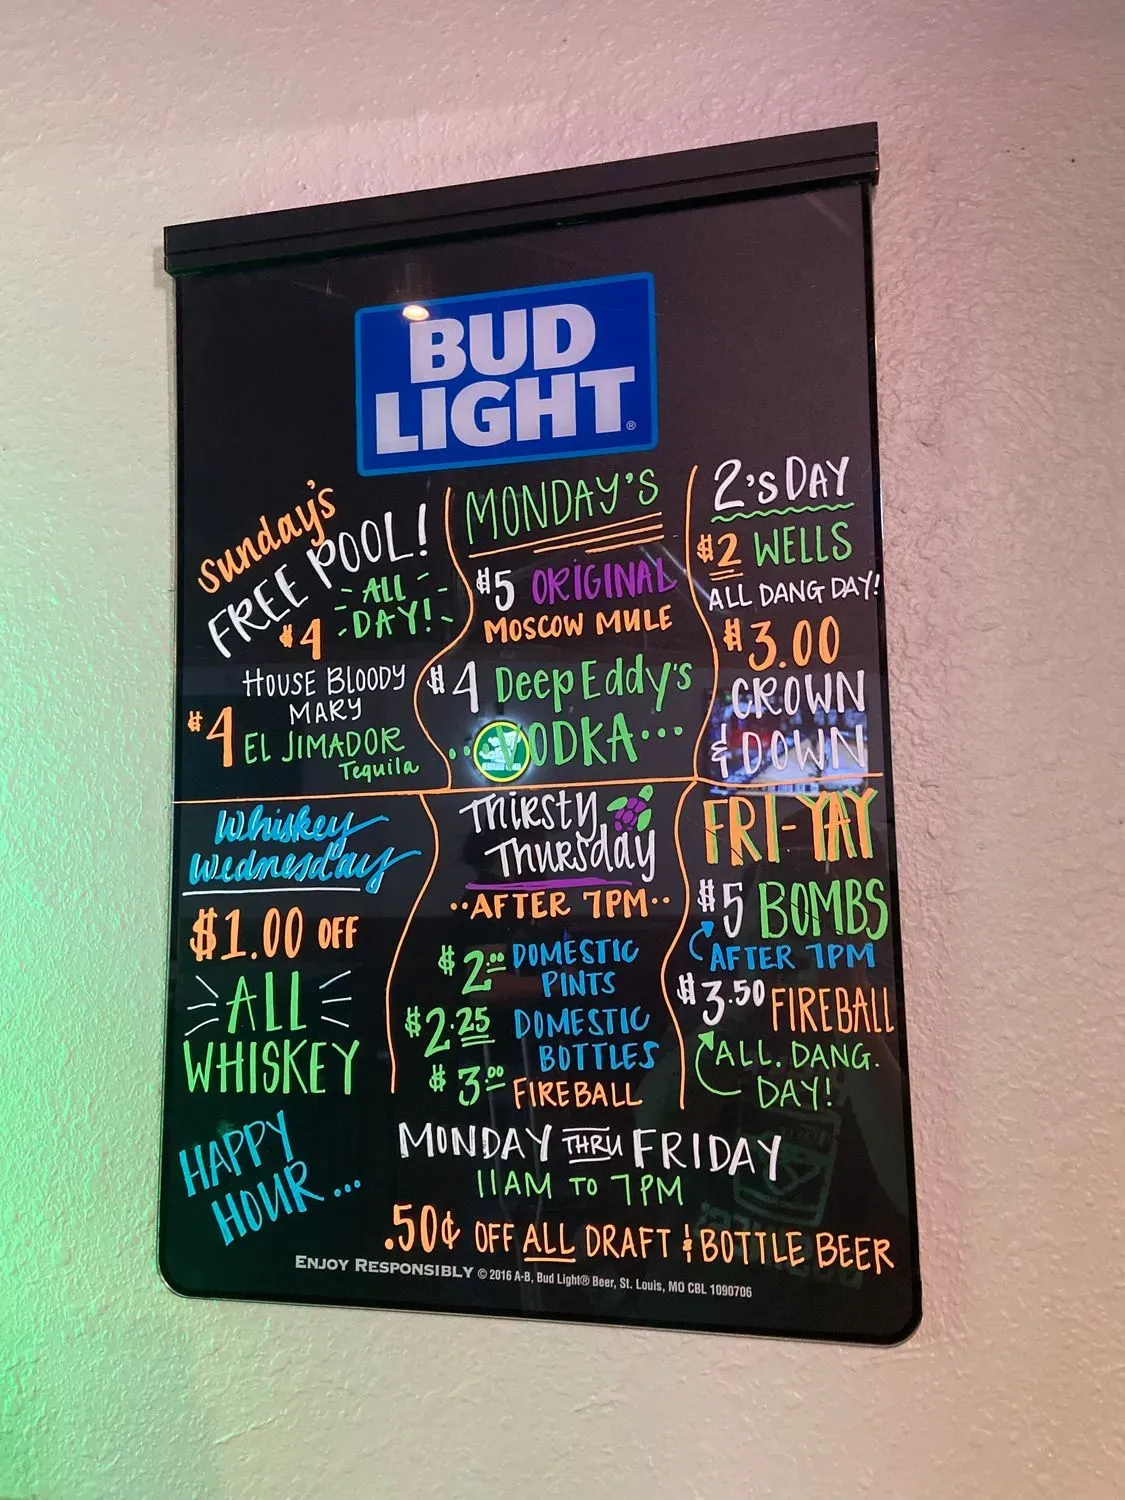 BUD
LIGHT®
Sunday's
FREE POOL!
ALL
DAY!
$4
HOUSE BLOODY
MARY
$4 EL JIMADOR
Tequila
MONDAY'S
$5 ORIGINAL
MOSCOW MULE
$4 Deep Eddy's
..VODKA...
2'sDAY
$2 WELLS
ALL DANG DAY!
$3.00
CROWN
& DOWN
Whiskey
Wednesday
$1.00 OFF
ALL
WHISKEY
Thirsty
Thursday
..AFTER 7PM..
$2.00 DOMESTIC
PINTS
$2.25 DOMESTIC
BOTTLES
$3.00 FIREBALL
FRI-YAY
$5 BOMBS
AFTER 7PM
$3.50 FIREBALL
ALL. DANG.
DAY!
HAPPY
HOUR...
MONDAY THRU FRIDAY
11AM TO 7PM
.50¢ OFF ALL DRAFT & BOTTLE BEER
ENJOY RESPONSIBLY © 2016 A-B, Bud Light® Beer, St. Louis, MO CBL 1090706